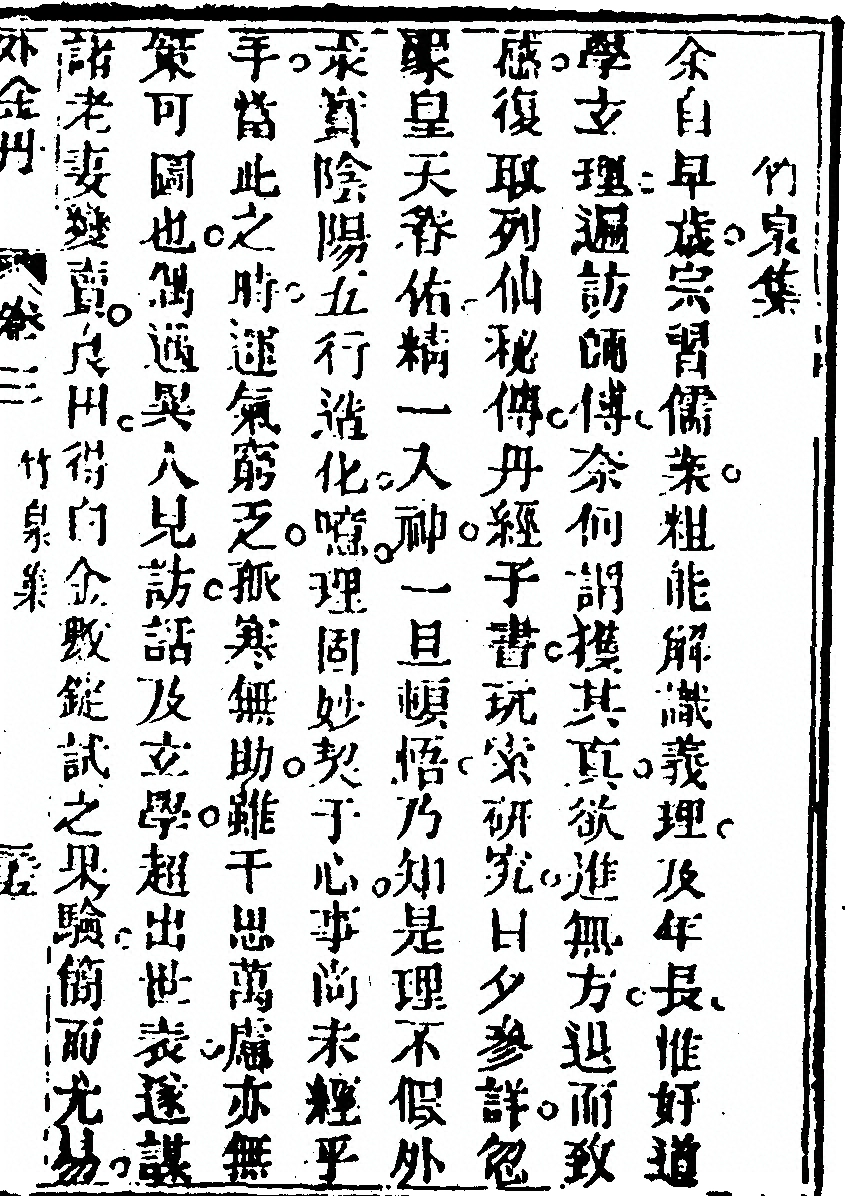 竹泉集
余自早歲宗習儒業粗能解識義理及年長惟好道
學玄理遍訪師傅奈何謂獲其真欲進無方退而致
感復取列仙秘傳丹經子書玩索研究日夕參詳忽
蒙皇天眷佑精一入神一旦頓悟乃知是理不假外
求實陰陽五行造化嘹理固妙契于心事尚未經乎
手當此之時運氣窮乏孤寒無助雖千思萬慮亦無
策可圖也偶遇異人見訪話及玄學超出世表遂謀
諸老妻變賣良田得白金數錠試之果驗簡而尤易
外金丹 卷三 竹泉集 五